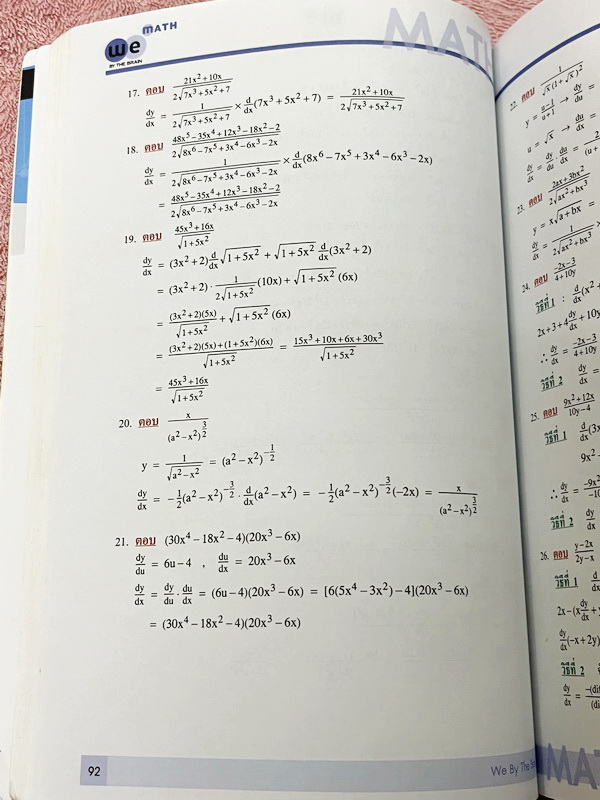 MATH
we
BY THE BRAIN
MATH
17. ตอบ (21x²+10x)/(2√(7x³+5x²+7))
dy/dx = 1/(2√(7x³+5x²+7)) × d/dx(7x³+5x²+7) = (21x²+10x)/(2√(7x³+5x²+7))
18. ตอบ (48x⁵−35x⁴+12x³−18x²−2)/(2√(8x⁶−7x⁵+3x⁴−6x³−2x))
dy/dx = 1/(2√(8x⁶−7x⁵+3x⁴−6x³−2x)) × d/dx(8x⁶−7x⁵+3x⁴−6x³−2x)
= (48x⁵−35x⁴+12x³−18x²−2)/(2√(8x⁶−7x⁵+3x⁴−6x³−2x))
19. ตอบ (45x³+16x)/√(1+5x²)
dy/dx = (3x²+2) d/dx √(1+5x²) + √(1+5x²) d/dx(3x²+2)
= (3x²+2) · 1/(2√(1+5x²)) (10x) + √(1+5x²) (6x)
= (3x²+2)(5x)/√(1+5x²) + √(1+5x²) (6x)
= ((3x²+2)(5x)+(1+5x²)(6x))/√(1+5x²) = (15x³+10x+6x+30x³)/√(1+5x²)
= (45x³+16x)/√(1+5x²)
20. ตอบ x/(a²−x²)^(3/2)
y = 1/√(a²−x²) = (a²−x²)^(−1/2)
dy/dx = −1/2(a²−x²)^(−3/2) · d/dx(a²−x²) = −1/2(a²−x²)^(−3/2)(−2x) = x/(a²−x²)^(3/2)
21. ตอบ (30x⁴−18x²−4)(20x³−6x)
dy/du = 6u−4 , du/dx = 20x³−6x
dy/dx = dy/du · du/dx = (6u−4)(20x³−6x) = [6(5x⁴−3x²)−4](20x³−6x)
= (30x⁴−18x²−4)(20x³−6x)
92
We By The
22. ตอบ 1/(√x(1+√x)²)
y = (u−1)/(u+1) → dy/du =
u = √x → du/dx =
dy/dx = dy/du · du/dx =
23. ตอบ (2ax+3bx²)/(2√(ax²+bx³))
y = x√(a+bx) =
dy/dx = 1/(2√(ax²+bx³)) ×
24. ตอบ (−2x−3)/(4+10y)
วิธีที่ 1 : d/dx(x²+
2x+3+4dy/dx+10y
∴ dy/dx = (−2x−3)/(4+10y)
วิธีที่ 2 dy/dx =
25. ตอบ (9x²+12x)/(10y−4)
วิธีที่ 1 d/dx(3x
9x²
∴ dy/dx =
วิธีที่ 2 dy/dx
26. ตอบ (y−2x)/(2y−x)
วิธีที่ 1 d
2x−(x dy/dx +
dy/dx(−x+2y)
วิธีที่ 2
dy/dx =
MAT